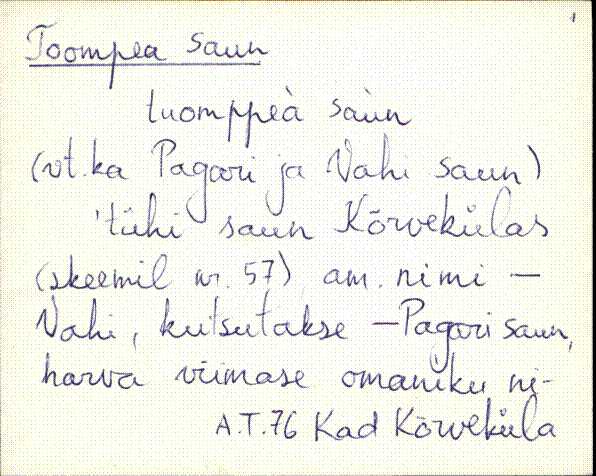 1
Toompea saun
tuomppeà saùn
(vt. ka Pagari ja Vahi saun)
'tühi saun Kõrvekülas
(skeemil nr. 57), am. nimi –
Vahi, kutsutakse – Pagari saun,
harva viimase omaniku ni-
A.T. 76 Kad Kõrveküla